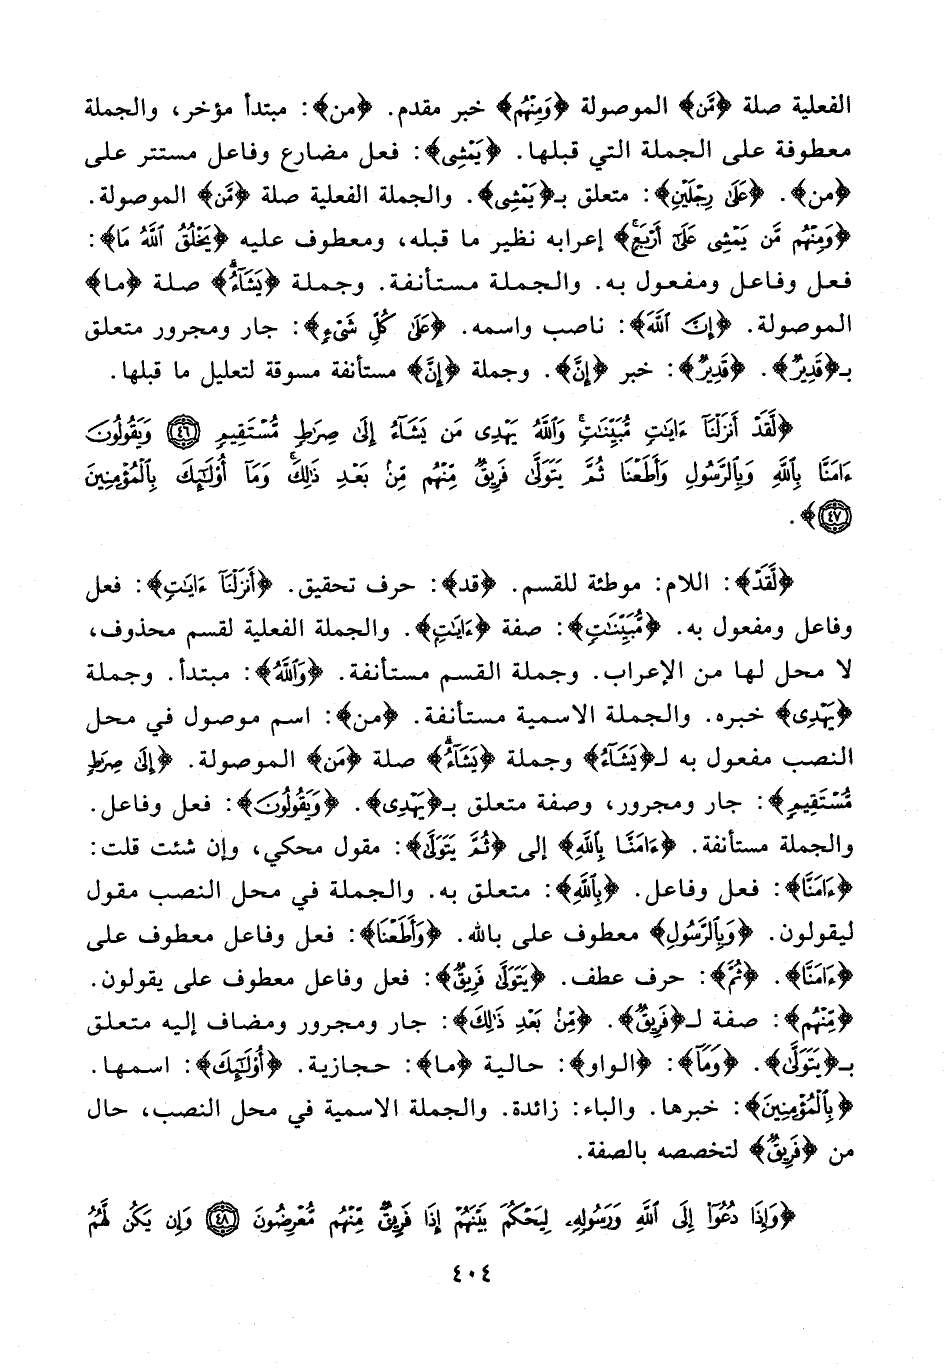 الفعلية صلة ﴿مَّن﴾ الموصولة ﴿وَمِنْهُم﴾ خبر مقدم. ﴿من﴾: مبتدأ مؤخر، والجملة
معطوفة على الجملة التي قبلها. ﴿يَمْشِى﴾: فعل مضارع وفاعل مستتر على
﴿من﴾. ﴿عَلَىٰ رِجْلَيْنِ﴾: متعلق بـ﴿يَمْشِى﴾. والجملة الفعلية صلة ﴿مَّن﴾ الموصولة.
﴿وَمِنْهُم مَّن يَمْشِى عَلَىٰٓ أَرْبَعٍ ۚ﴾ إعرابه نظير ما قبله، ومعطوف عليه ﴿يَخْلُقُ ٱللَّهُ مَا﴾:
فعل وفاعل ومفعول به. والجملة مستأنفة. وجملة ﴿يَشَآءُ ۚ﴾ صلة ﴿ما﴾
الموصولة. ﴿إِنَّ ٱللَّهَ﴾: ناصب واسمه. ﴿عَلَىٰ كُلِّ شَىْءٍ﴾: جار ومجرور متعلق
بـ﴿قَدِيرٌ﴾. ﴿قَدِيرٌ﴾: خبر ﴿إِنَّ﴾. وجملة ﴿إِنَّ﴾ مستأنفة مسوقة لتعليل ما قبلها.
﴿لَّقَدْ أَنزَلْنَآ ءَايَٰتٍ مُّبَيِّنَٰتٍ ۚ وَٱللَّهُ يَهْدِى مَن يَشَآءُ إِلَىٰ صِرَٰطٍ مُّسْتَقِيمٍ ٤٦ وَيَقُولُونَ
ءَامَنَّا بِٱللَّهِ وَبِٱلرَّسُولِ وَأَطَعْنَا ثُمَّ يَتَوَلَّىٰ فَرِيقٌ مِّنْهُم مِّنۢ بَعْدِ ذَٰلِكَ ۚ وَمَآ أُو۟لَٰٓئِكَ بِٱلْمُؤْمِنِينَ
٤٧﴾.
﴿لَّقَدْ﴾: اللام: موطئة للقسم. ﴿قد﴾: حرف تحقيق. ﴿أَنزَلْنَآ ءَايَٰتٍ﴾: فعل
وفاعل ومفعول به. ﴿مُّبَيِّنَٰتٍ﴾: صفة ﴿ءَايَٰتٍ﴾. والجملة الفعلية لقسم محذوف،
لا محل لها من الإعراب. وجملة القسم مستأنفة. ﴿وَٱللَّهُ﴾: مبتدأ. وجملة
﴿يَهْدِى﴾ خبره. والجملة الاسمية مستأنفة. ﴿من﴾: اسم موصول في محل
النصب مفعول به لـ﴿يَشَآءُ﴾ وجملة ﴿يَشَآءُ ۚ﴾ صلة ﴿مَن﴾ الموصولة. ﴿إِلَىٰ صِرَٰطٍ
مُّسْتَقِيمٍ﴾: جار ومجرور، وصفة متعلق بـ﴿يَهْدِى﴾. ﴿وَيَقُولُونَ﴾: فعل وفاعل.
والجملة مستأنفة. ﴿ءَامَنَّا بِٱللَّهِ﴾ إلى ﴿ثُمَّ يَتَوَلَّىٰ﴾: مقول محكي، وإن شئت قلت:
﴿ءَامَنَّا﴾: فعل وفاعل. ﴿بِٱللَّهِ﴾: متعلق به. والجملة في محل النصب مقول
ليقولون. ﴿وَبِٱلرَّسُولِ﴾ معطوف على بالله. ﴿وَأَطَعْنَا﴾: فعل وفاعل معطوف على
﴿ءَامَنَّا﴾. ﴿ثُمَّ﴾: حرف عطف. ﴿يَتَوَلَّىٰ فَرِيقٌ﴾: فعل وفاعل معطوف على يقولون.
﴿مِّنْهُم﴾: صفة لـ﴿فَرِيقٌ﴾. ﴿مِّنۢ بَعْدِ ذَٰلِكَ﴾: جار ومجرور ومضاف إليه متعلق
بـ﴿يَتَوَلَّىٰ﴾. ﴿وَمَآ﴾: ﴿الواو﴾: حالية ﴿ما﴾: حجازية. ﴿أُو۟لَٰٓئِكَ﴾: اسمها.
﴿بِٱلْمُؤْمِنِينَ﴾: خبرها. والباء: زائدة. والجملة الاسمية في محل النصب، حال
من ﴿فَرِيقٌ﴾ لتخصصه بالصفة.
﴿وَإِذَا دُعُوٓا۟ إِلَى ٱللَّهِ وَرَسُولِهِۦ لِيَحْكُمَ بَيْنَهُمْ إِذَا فَرِيقٌ مِّنْهُم مُّعْرِضُونَ ٤٨ وَإِن يَكُن لَّهُمُ
٤٠٤